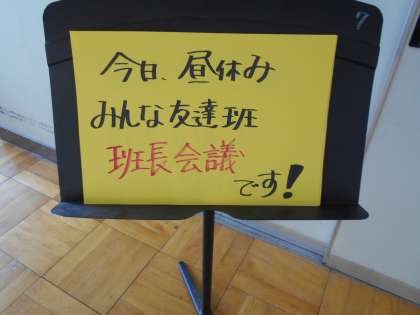 7
今日、昼休み
みんな友達班
班長会議
です!